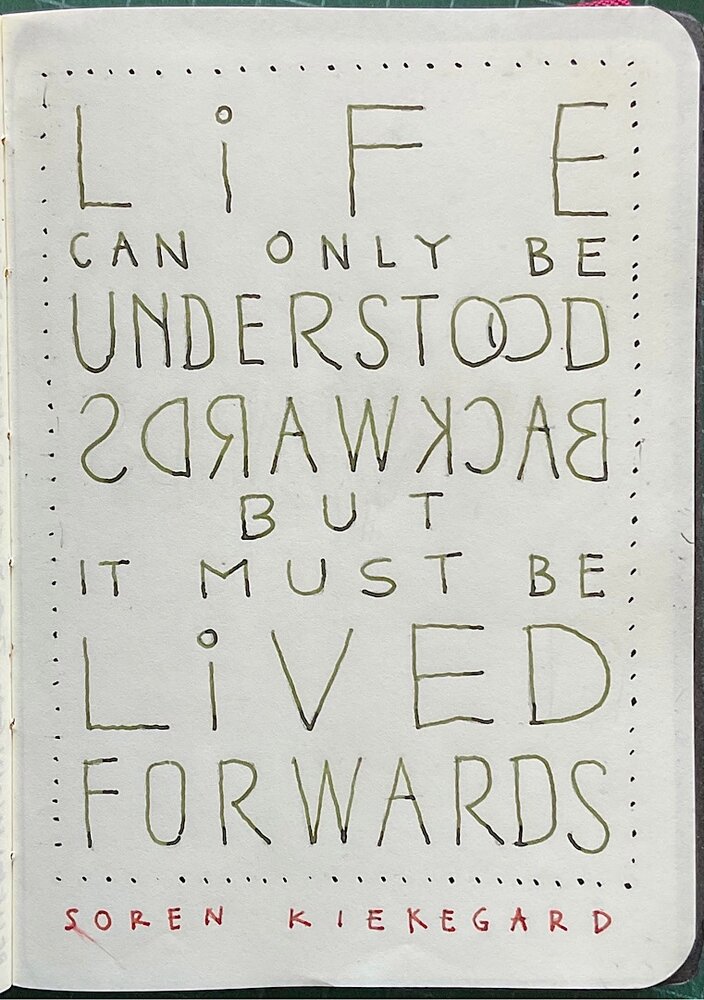 LiFE
CAN ONLY BE
UNDERSTOOD
BACKWARDS
BUT
IT MUST BE
LiVED
FORWARDS
SOREN KIEKEGARD